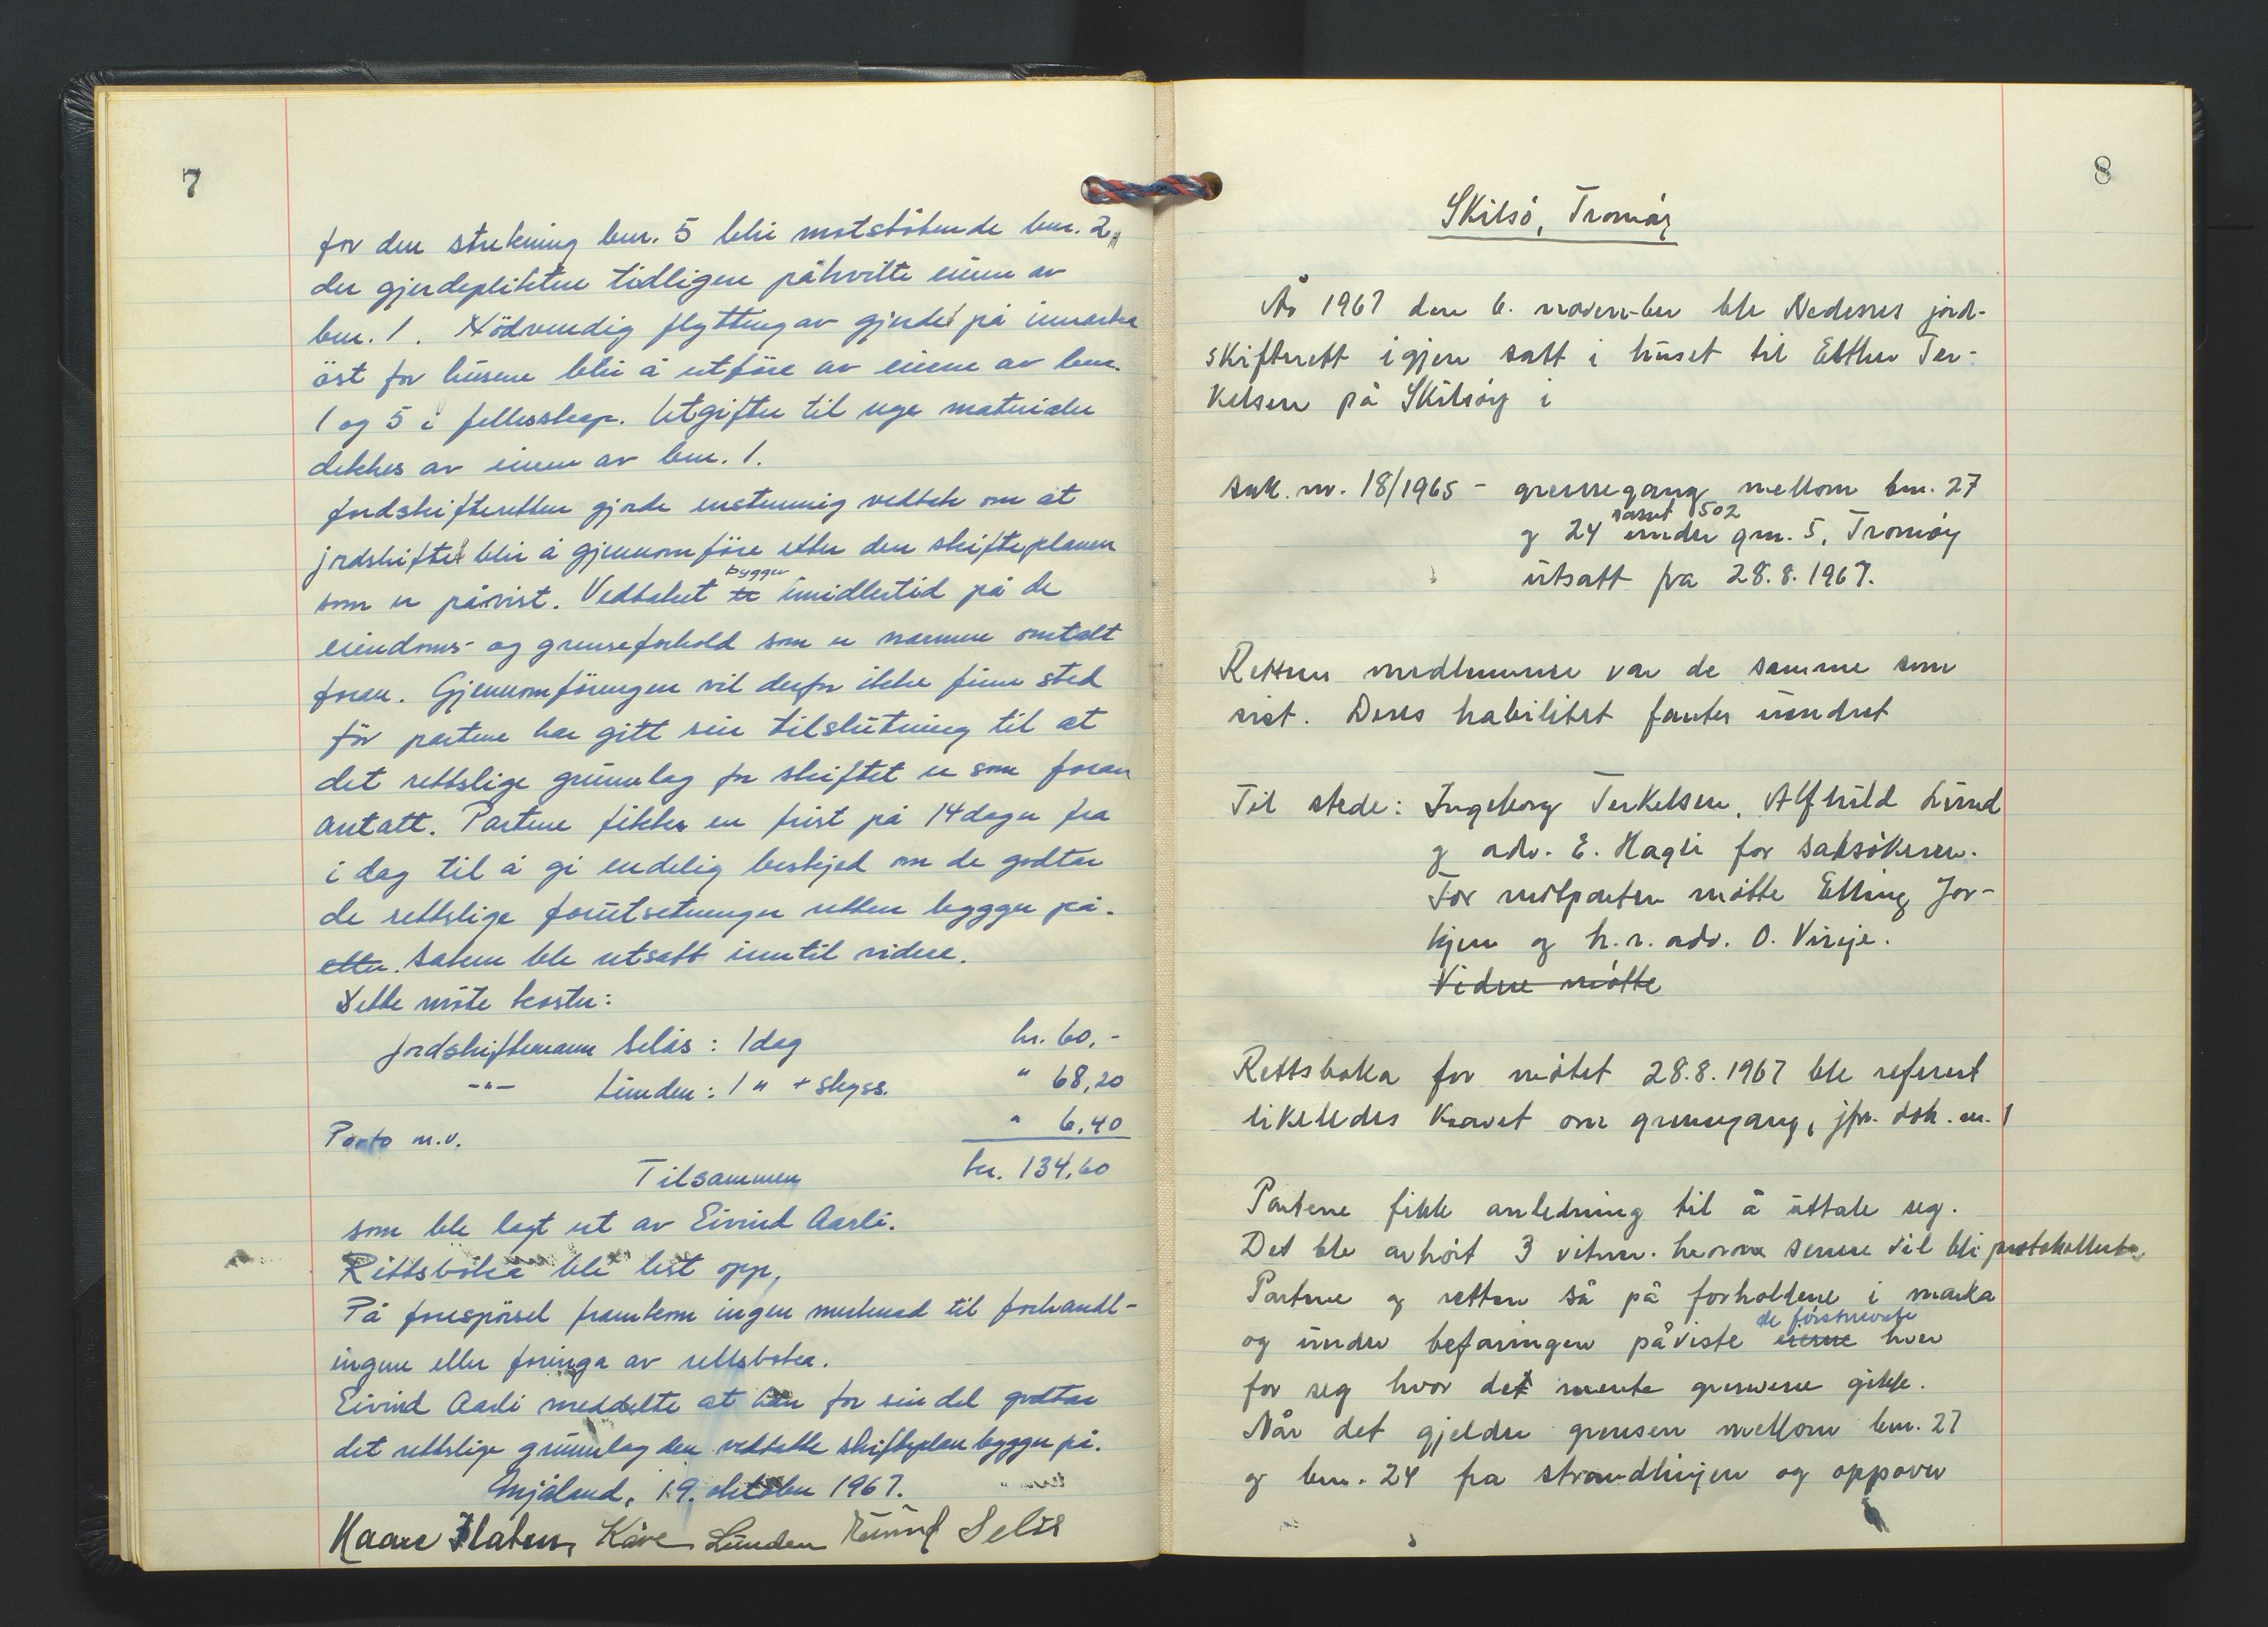 7
for den strekning bnr. 5 blir motstötende bnr. 2,
der gjerdeplikten tidligere påhvilte eieren av
bnr. 1. Nödvendig flytting av gjerdet på innmarka
öst for husene blir å utföre av eierne av bnr.
1 og 5 i fellesskap. Utgifter til nye materialer
dekkes av eieren av bnr. 1.
Jordskifteretten gjorde enstemmig vedtak om at
jordskiftet blir å gjennomföre etter den skifteplanen
som er påvist. Vedtaket er bygger imidlertid på de
eiendoms- og grenseforhold som er nærmere omtalt
foran. Gjennomföringen vil derfor ikke finne sted
för partene har gitt sin tilslutning til at
det rettslige grunnlag for skiftet er som foran
antatt. Partene fikk en frist på 14 dager fra
i dag til å gi endelig beskjed om de godtar
de rettslige forutsetninger retten bygger på.
etter. Saken ble utsatt inntil videre.
Dette möte koster:
Jordskiftemann Selås: 1 dag kr. 60,-
-"- Lunden: 1 " + skyss. " 68,20
Porto m.v. " 6,40
Tilsammen kr. 134,60
som ble lagt ut av Eivind Aarli.
Rettsboka ble lest opp,
På forespörsel framkom ingen merknad til forhandl-
ingene eller föringa av rettsboka.
Eivind Aarli meddelte at han for sin del godtar
det rettslige grunnlag den vedtatte skifteplan bygger på.
Mjåland, 19. oktober 1967.
Kaare Flaten, Kåre Lunden Selås
8
Skilsö, Tromöy
År 1967 den 6. november ble Nedenes jord-
skifterett igjen satt i huset til Esther Ter-
kelsen på Skilsöy i
sak. nr. 18/1965 - grensegang mellom bnr. 27
og 24 samt 502 under gnr. 5, Tromöy
utsatt fra 28.8.1967.
Rettens medlemmer var de samme som
sist. Deres habilitet fantes uendret
Til stede: Ingeborg Terkelsen, Alfhild Lund
og adv. E. Hagli for saksökeren.
For motparten mötte Elling Jor-
kjen og h.r.adv. O. Vireje.
Videre mötte
Rettsboka for mötet 28.8.1967 ble referert
likeledes kravet om grensegang, jfr. dok. nr. 1
Partene fikk anledning til å uttale seg.
Det ble avhört 3 vitner. senere vil bli protokollert.
Partene og retten så på forholdene i marka
og under befaringen påviste eierne de förstnevnte hver
for seg hvor det mente grensene gikk.
Når det gjelder grensen mellom bnr. 27
og bnr. 24 fra strandlinjen og oppover